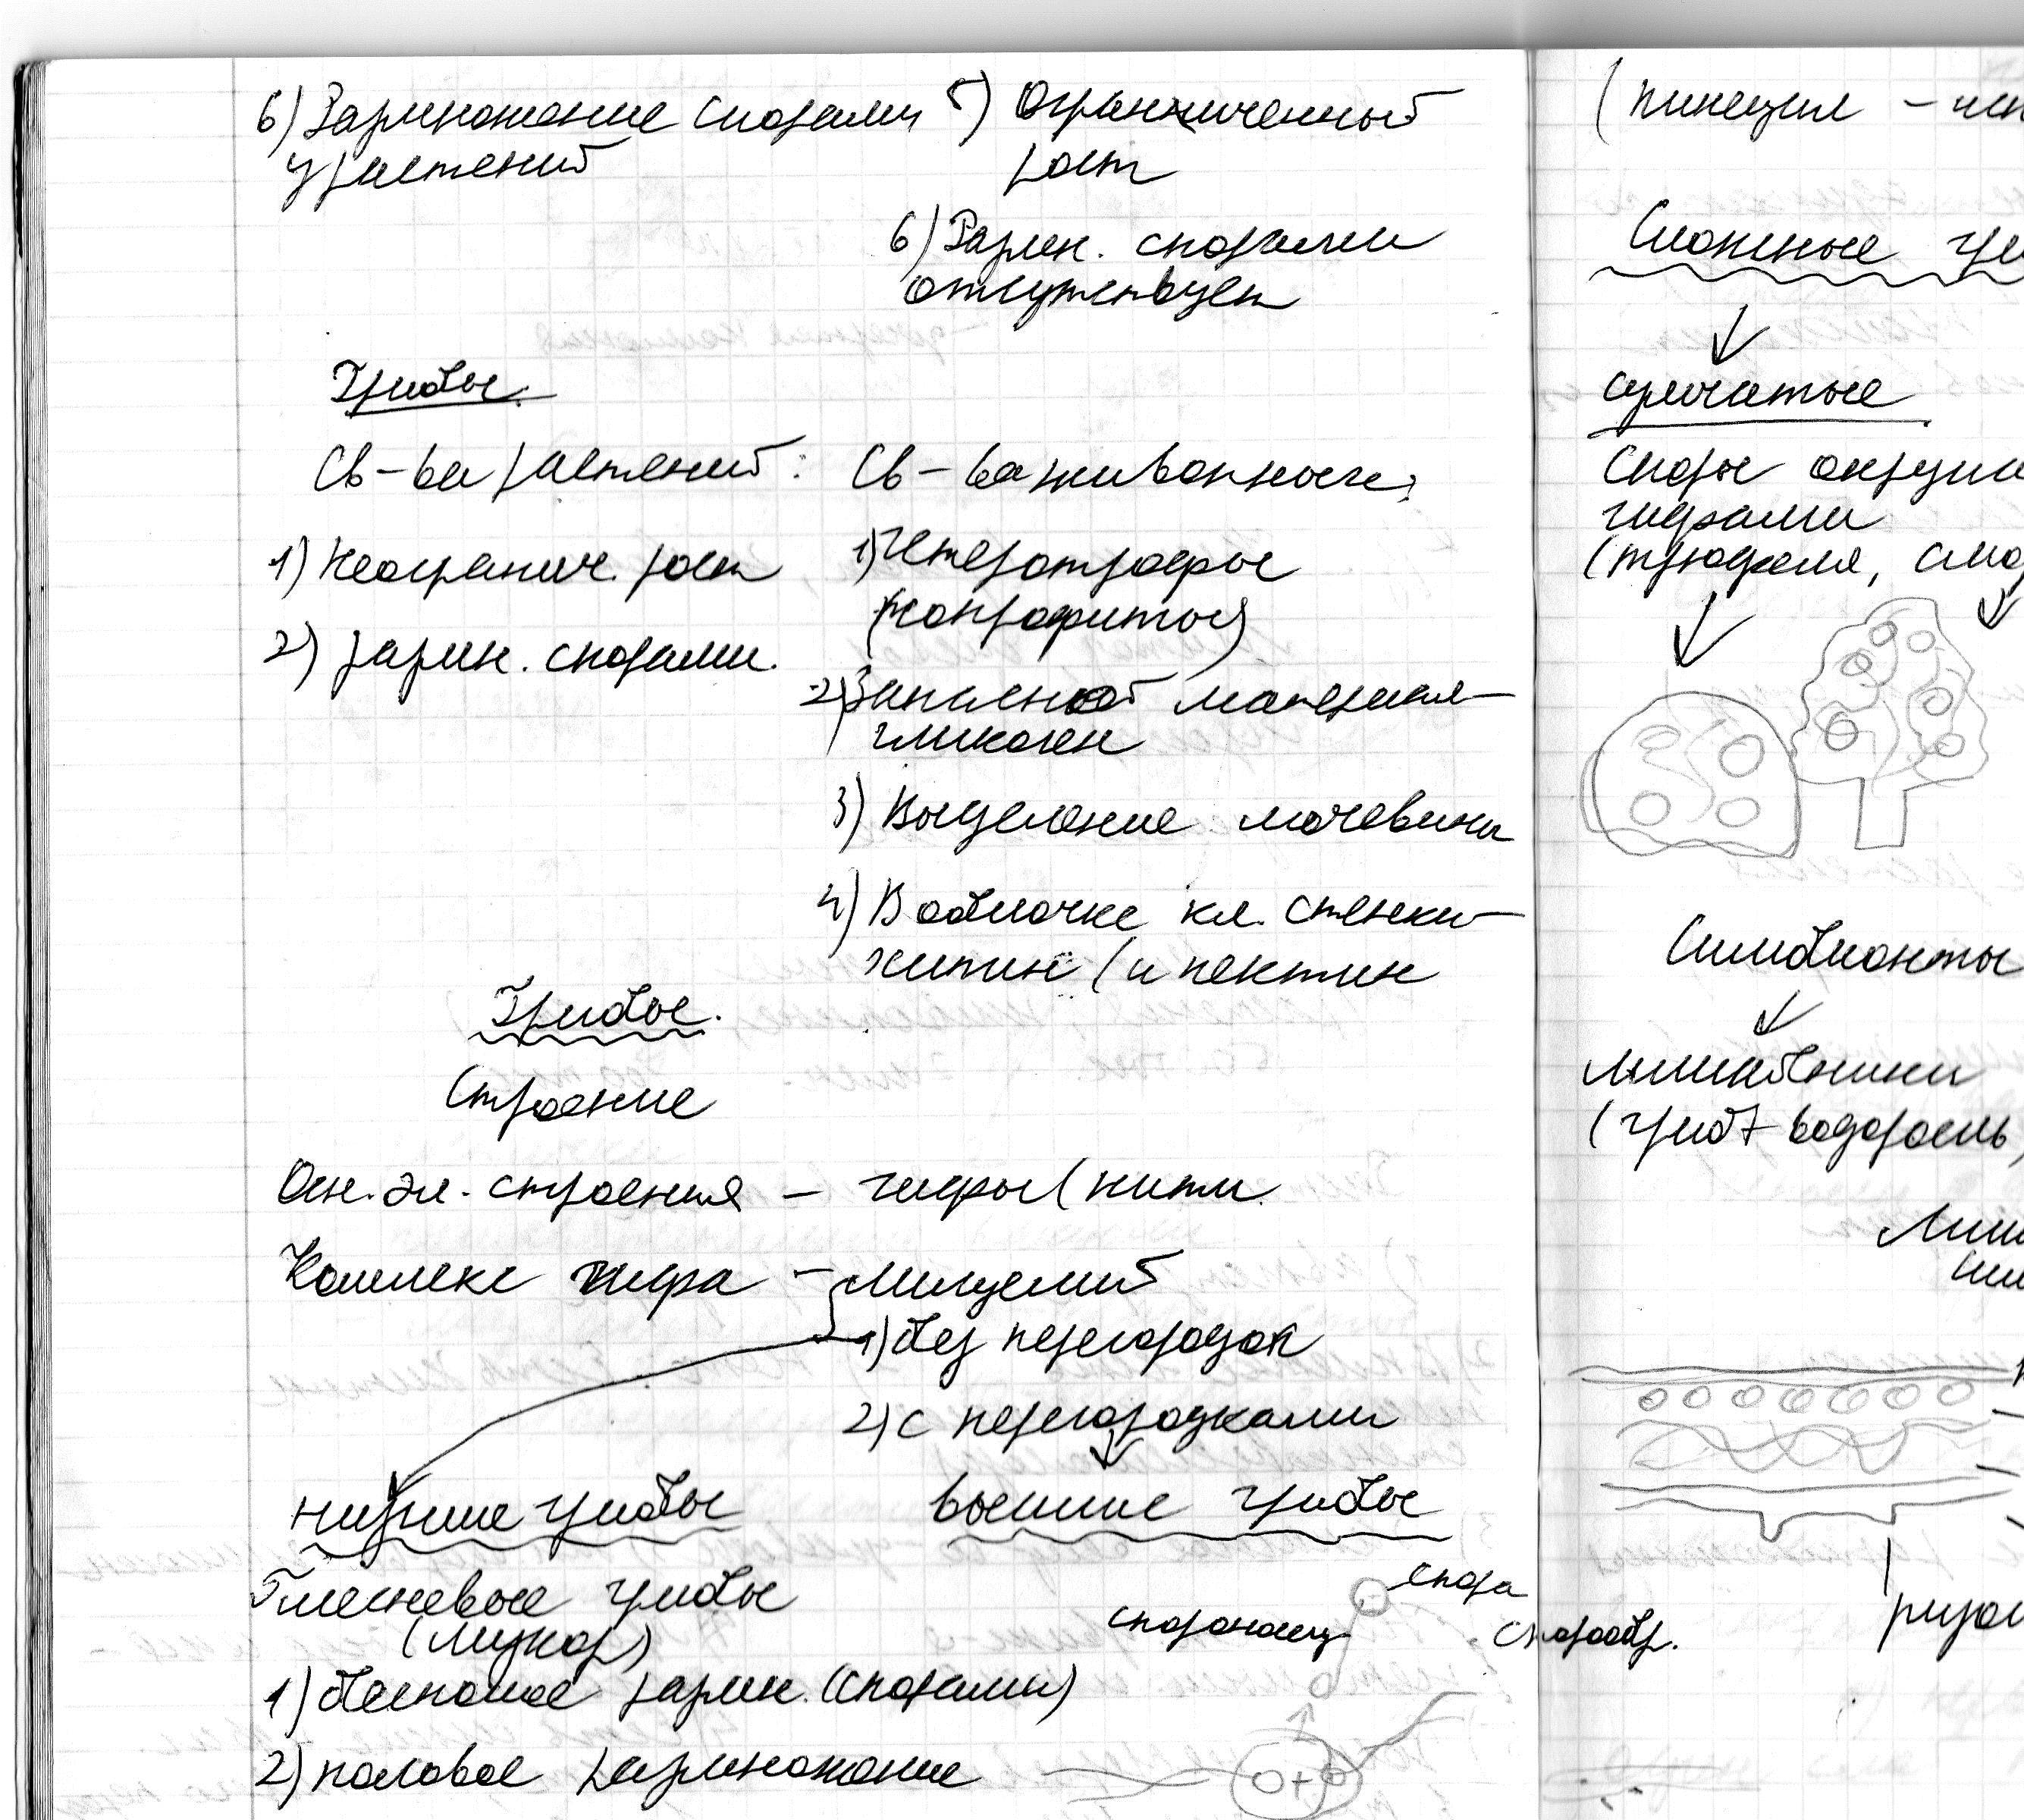 6) Размножение спорами
у растений
5) Ограниченный
рост
6) Размн. спорами
отсутствует
Грибы.
Св-ва растений:
1) Неогранич. рост
2) размн. спорами.
Св-ва животных:
1) Гетеротрофы
2) Запасной материал –
гликоген
3) Выделение мочевины
4) В оболочке кл. стенки –
хитин (и пектин
Грибы.
Строение
Осн. эл. строения – гифы (нити
Комплекс гифа – мицелий
1) без перегородок
2) с перегородками
низшие грибы
высшие грибы
Плесневые грибы
(мукор)
1) бесполое размн. (спорами)
2) половое размножение
спора
спорообр.
(пиницил –
Сложные
сумчатые
Споры
гифами
(трюфеля,
Симбионты
лишайники
(гриб + водоросль)